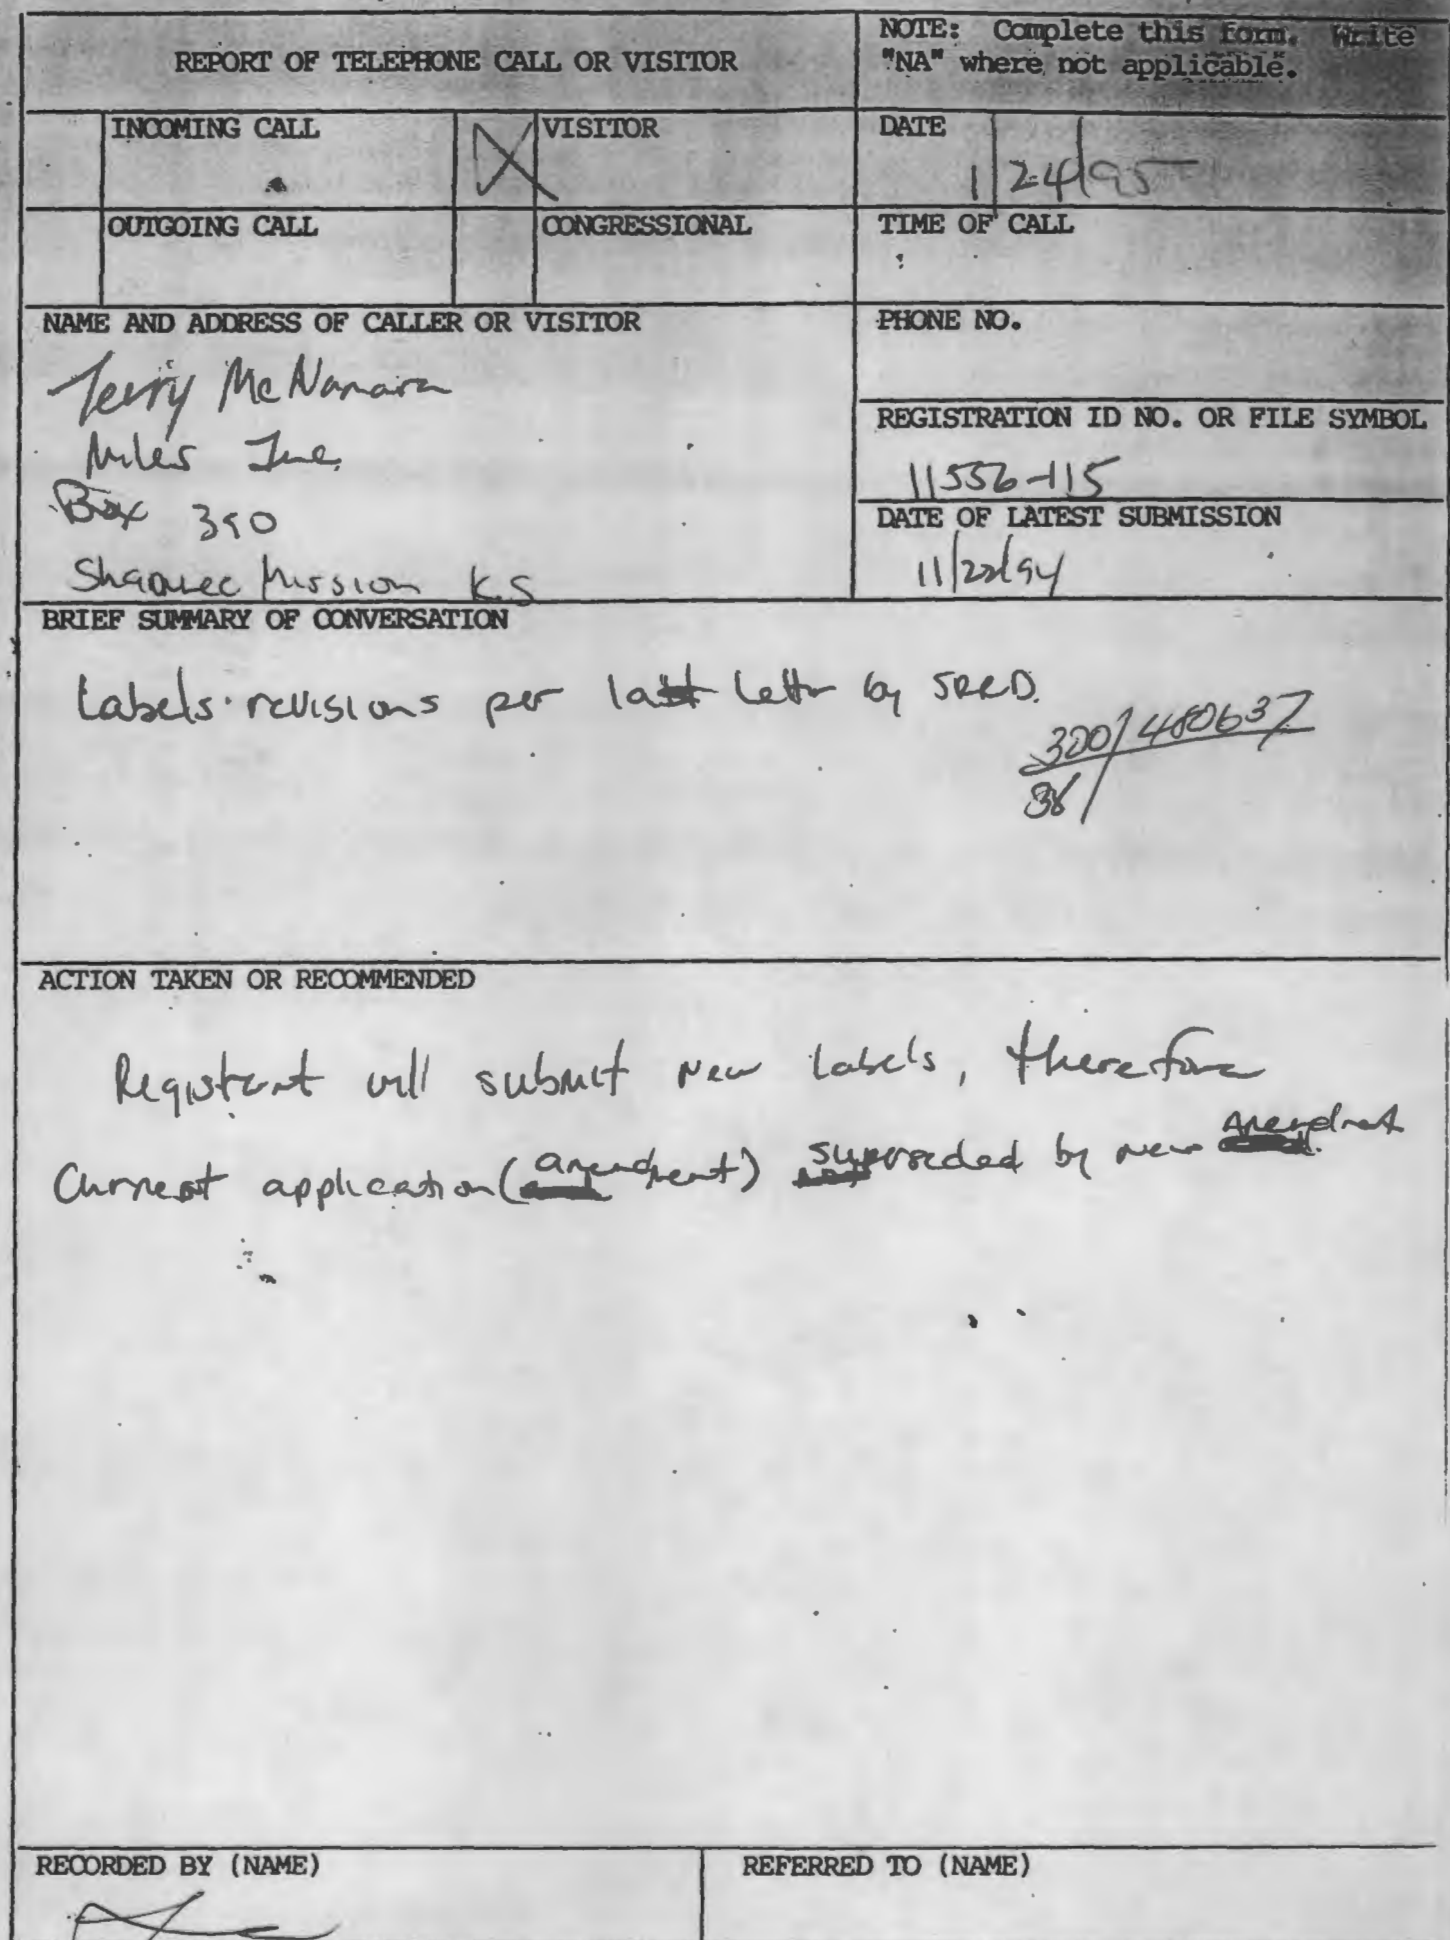 REPORT OF TELEPHONE CALL OR VISITOR
NOTE: Complete this form. Write
"NA" where not applicable.
INCOMING CALL
VISITOR
DATE
1/24/95
OUTGOING CALL
CONGRESSIONAL
TIME OF CALL
NAME AND ADDRESS OF CALLER OR VISITOR
PHONE NO.
Terry McNamara
Miles Inc.
Box 390
Shawnee Mission KS
REGISTRATION ID NO. OR FILE SYMBOL
11556-115
DATE OF LATEST SUBMISSION
11/22/94
BRIEF SUMMARY OF CONVERSATION
Labels revisions per last letter by SRRD.
300/480637
38/
ACTION TAKEN OR RECOMMENDED
Registrant will submit new labels, therefore
Current application (amendment) superseded by new Amendment
RECORDED BY (NAME)
REFERRED TO (NAME)